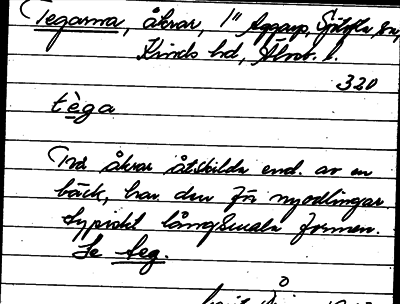 Tegarna, åkrar, 1" Aggarp, Sjötofta sn,
Kinds hd, Älvsb. l.
320
tèga
Två åkrar åtskilda end. av en
bäck, har den för nyodlingar
typiskt långsmala formen.
Se teg.